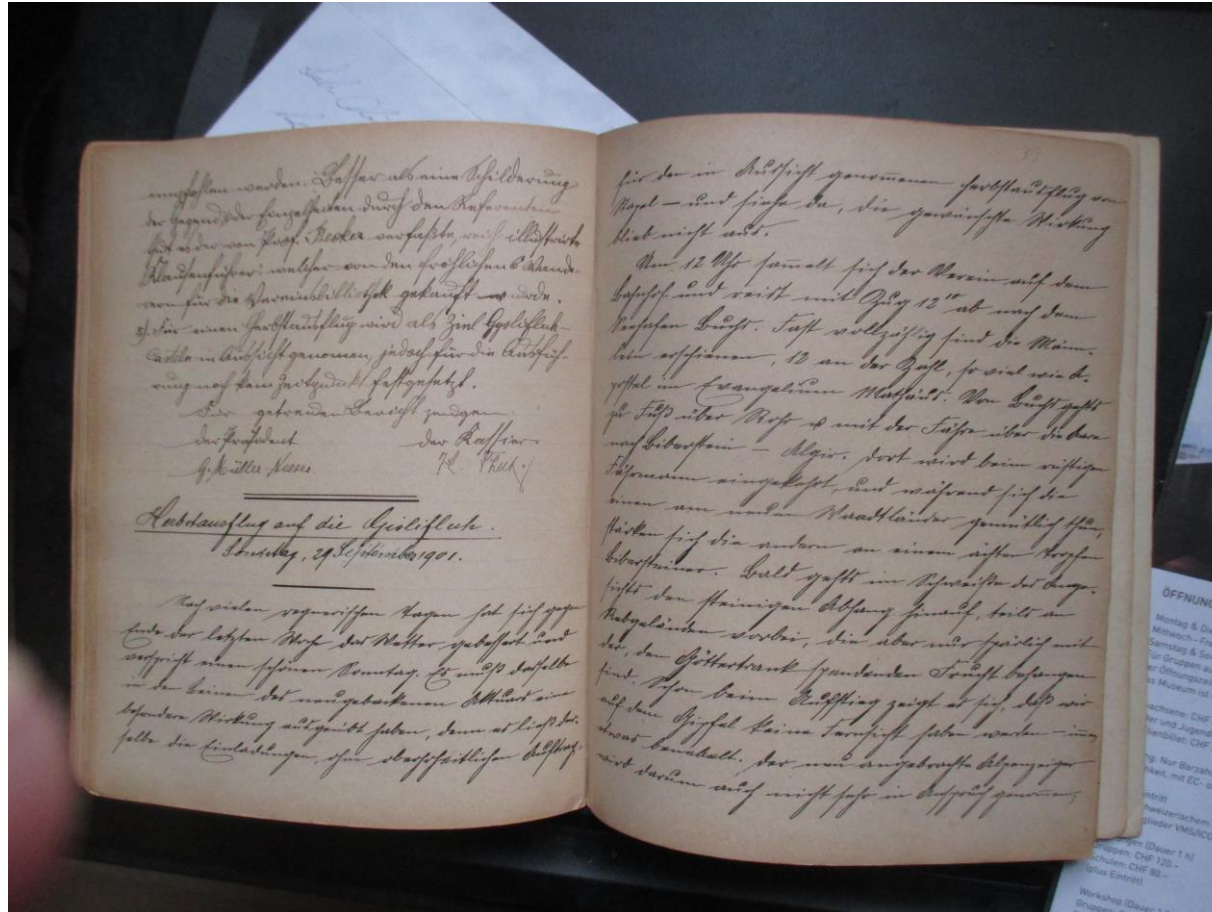 empfohlen werden. Besser als eine Schilderung
der Gegend oder Einzelheiten durch den Referenten
tut es der von Prof. Becker verfaßte, reich illustrierte
„Klausenführer“, welcher von den fröhlichen 6 Wande-
rern für die Vereinsbibliothek gekauft wurde.
5). Für einen Herbstausflug wird als Ziel Gyslifluh-
Castelen in Aussicht genomen, jedoch für die Ausfüh-
rung noch kein Zeitpunkt festgesetzt.
Für getreuen Bericht zeugen:
der Präsident der Kassier:
G. Müller
Herbstausflug auf die Gisliflue.
Sonntag, 29 September 1901.
Nach vielen regnerischen Tagen hat sich gegen
Ende der letzten Woche das Wetter gebessert und
verspricht einen schönen Sonntag. Es muß dasselbe
in den Beinen des neugebackenen Aktuars eine
besondere Wirkung ausgeübt haben, denn es ließ der-
selbe die Einladungen, ohne oberhoheitlichen Auftrag,
für den in Aussicht genomenen Herbstausflug von
Stapel – und siehe da, die gewünschte Wirkung
blieb nicht aus.
Um 12 Uhr samelt sich der Verein auf dem
Bahnhof und reist mit Zug 12¹⁰ ab nach dem
Seehafen Buchs. Fast vollzählig sind die Männ-
lein erschienen, 12 an der Zahl, so viel wie A-
postel im Evangelium Mathäus. Von Buchs gehts
zu Fuß über Rohr & mit der Fähre über die Aare
nach Biberstein – Algir. Dort wird beim rüstigen
Fährmann eingekehrt, und während sich die
einen am neuen Waadtländer gemütlich thun,
stärken sich die andern an einem ächten Tropfen
Bibersteiner. Bald gehts im Schweiße des Ange-
sichts den steinigen Abhang hinauf, teils an
Rebgeländen vorbei, die aber nur spärlich mit
der, den Göttertrank spendenden Frucht behangen
sind. Schon beim Aufstieg zeigt es sich, daß wir
auf dem Gipfel keine Fernsicht haben werden –
etwas benebelt. Der neu angebrachte Alpenzeiger
wird darum auch nicht sehr in Anspruch genomen,
ÖFFNUNG
Montag & Di
Mittwoch – Fre
Samstag & So
Für Gruppen au
der Öffnungszei
Museum ist
CHF
und Jugend
CHF
Nur Barzah
mit EC-
(Dauer 1 h)
Gruppen: CHF 120.–
Schulen: CHF 80.–
(plus Eintritt)
Workshop (Dauer
Gruppen